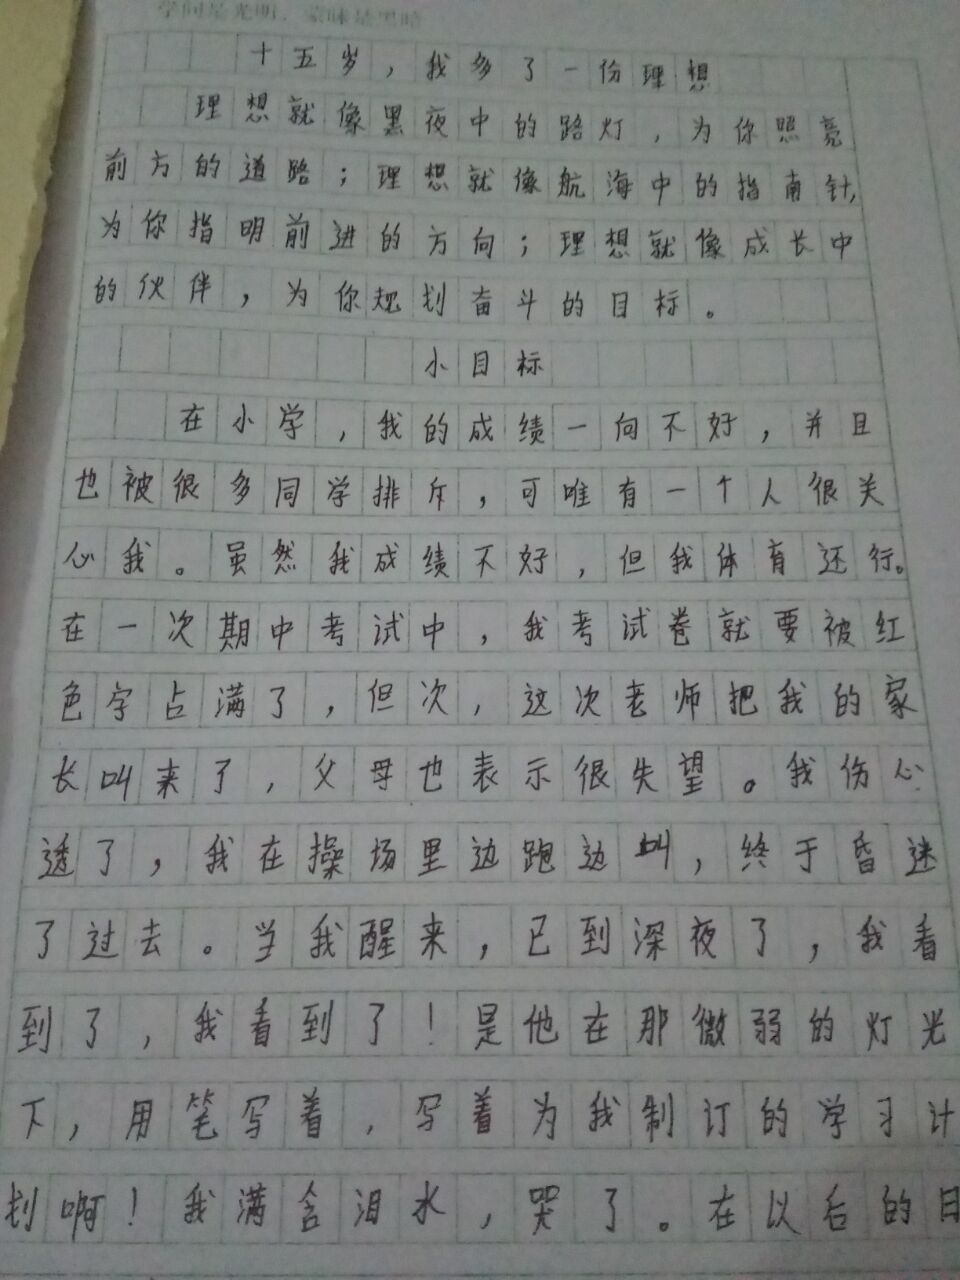 学问是光明，蒙昧是黑暗
十五岁，我多了一份理想
理想就像黑夜中的路灯，为你照亮
前方的道路；理想就像航海中的指南针，
为你指明前进的方向；理想就像成长中
的伙伴，为你规划奋斗的目标。
小目标
在小学，我的成绩一向不好，并且
也被很多同学排斥，可唯有一个人很关
心我。虽然我成绩不好，但我体育还行。
在一次期中考试中，我考试卷就要被红
色字占满了，但次，这次老师把我的家
长叫来了，父母也表示很失望。我伤心
透了，我在操场里边跑边叫，终于昏迷
了过去。当我醒来，已到深夜了，我看
到了，我看到了！是他在那微弱的灯光
下，用笔写着，写着为我制订的学习计
划啊！我满含泪水，哭了。在以后的日